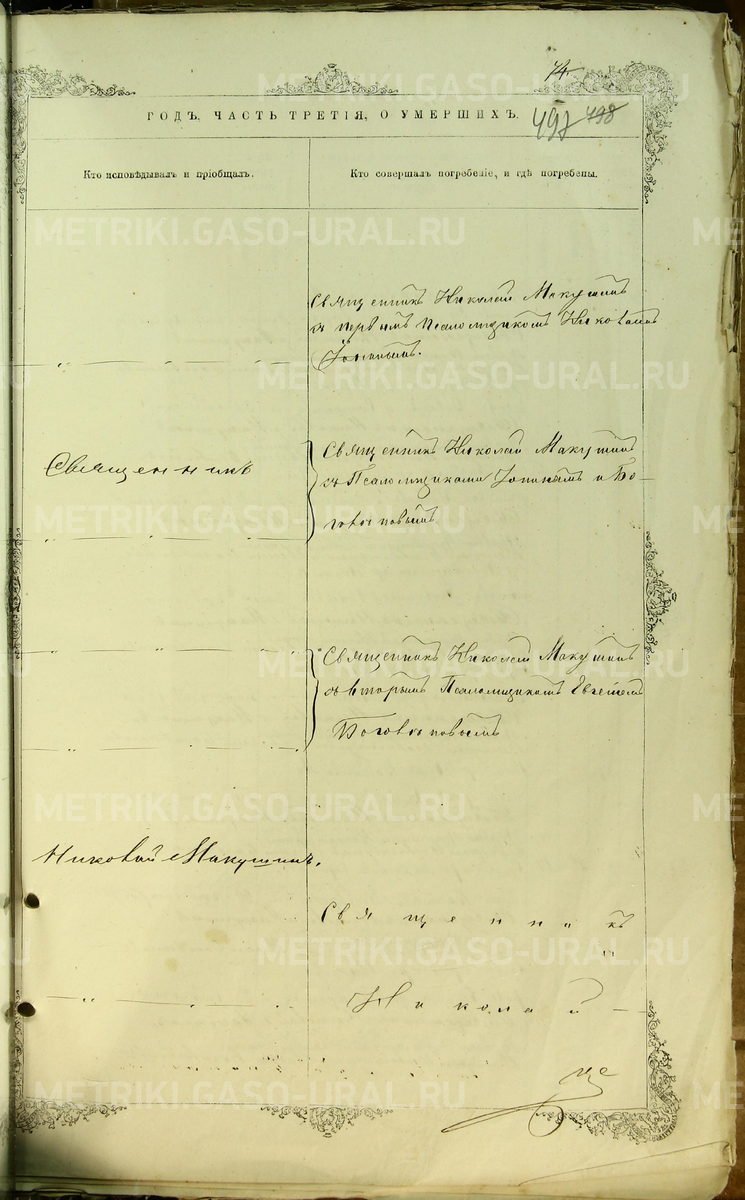 74
ГОДЪ, ЧАСТЬ ТРЕТІЯ, О УМЕРШИХЪ.
497 498
Кто исповѣдывалъ и пріобщалъ.
Кто совершалъ погребеніе, и гдѣ погребены.
METRIKI.GASO-URAL.RU
Священникъ Николай Макушинъ
съ первымъ Псаломщикомъ Николаемъ
Священникъ
Священникъ Николай Макушинъ
съ Псаломщиками и Бо-
гословымъ
Священникъ Николай Макушинъ
съ вторымъ Псаломщикомъ Евгеніемъ
Николай Макушинъ.
Священникъ
Николай